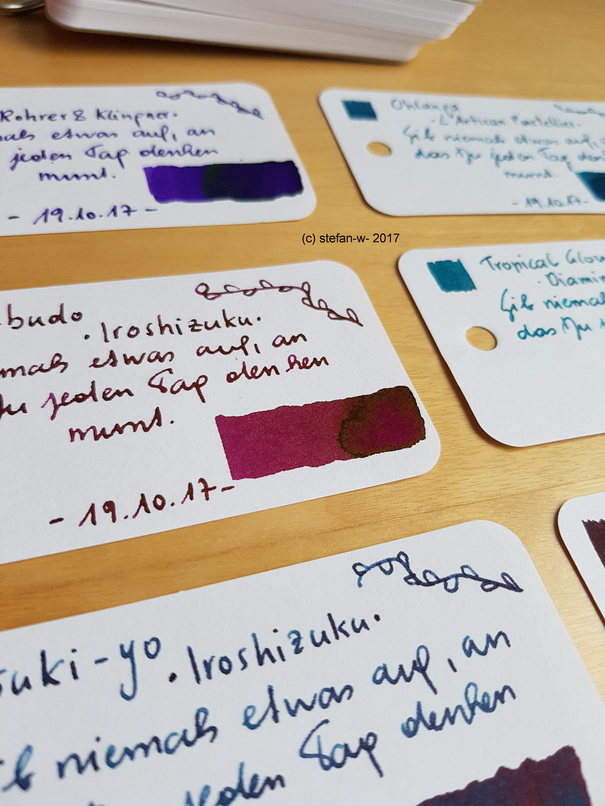 Rohrer & Klingner.
etwas auf, an
jeden Tag denken
musst.
- 19.10.17 -
L'Artisan Pastellier.
Gib niemals etwas auf, a
das Du jeden Tag den
musst.
- 19.10.17
(c) stefan-w- 2017
Tropical Glow
· Diamin
Gib niemal
das Du
-budo
· Iroshizuku ·
mals etwas auf, an
Du jeden Tag denken
musst.
- 19.10.17 -
suki-yo · Iroshizuku ·
Gib niemals etwas auf, an
jeden Tag denken